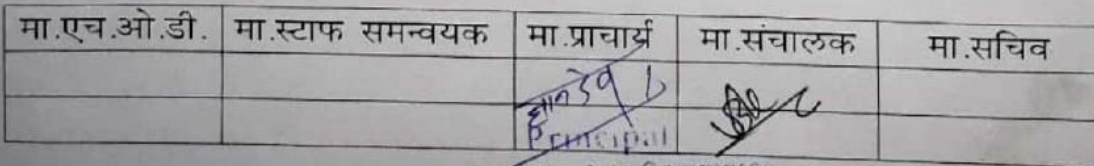 मा.एच.ओ.डी. मा.स्टाफ समन्वयक मा.प्राचार्य मा.संचालक मा.सचिव
Principal